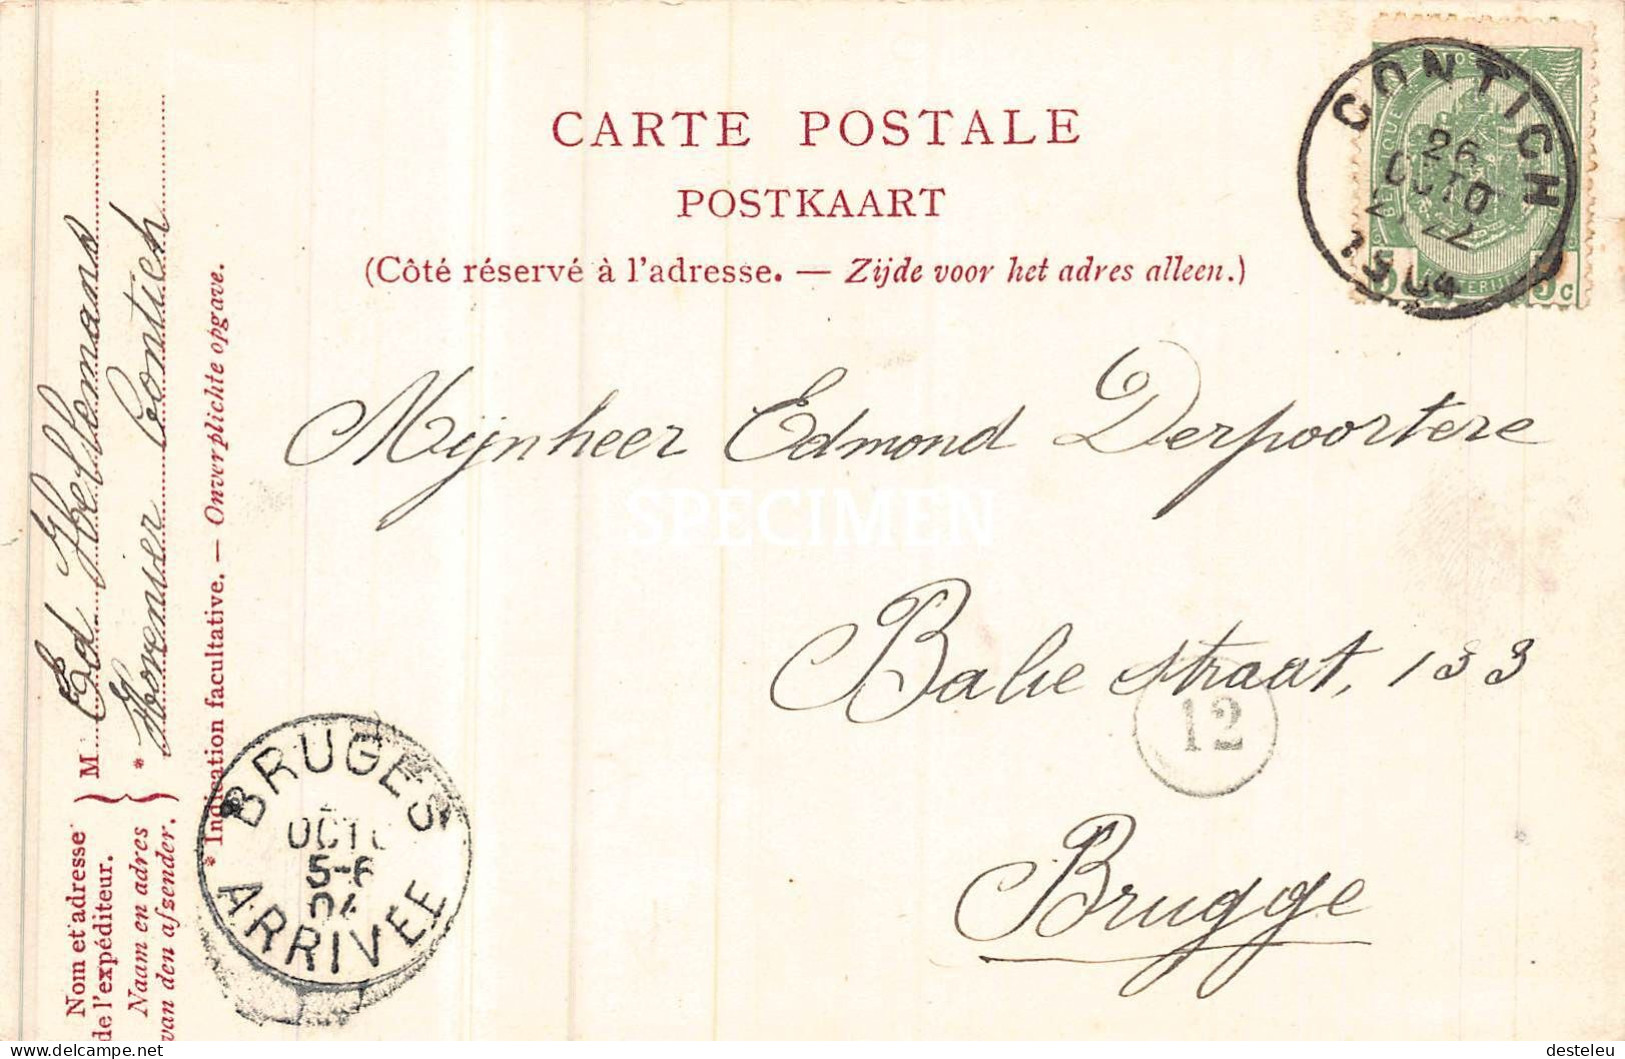 CARTE POSTALE
POSTKAART
(Côté réservé à l'adresse. — Zijde voor het adres alleen.)
CONTICH
26
OCTO
1S 04
BELGIQUE
5c
Mijnheer Edmond Derpoortere
SPECIMEN
Balie straat, 133
12
Brugge
BRUGES
OCTO
5-6
04
ARRIVEE
Nom et adresse de l'expéditeur.
Naam en adres van den afzender.
M Ed Hellemans
* Hovenier Contich
* Indication facultative. — Onverplichte opgave.
desteleu
delcampe.net